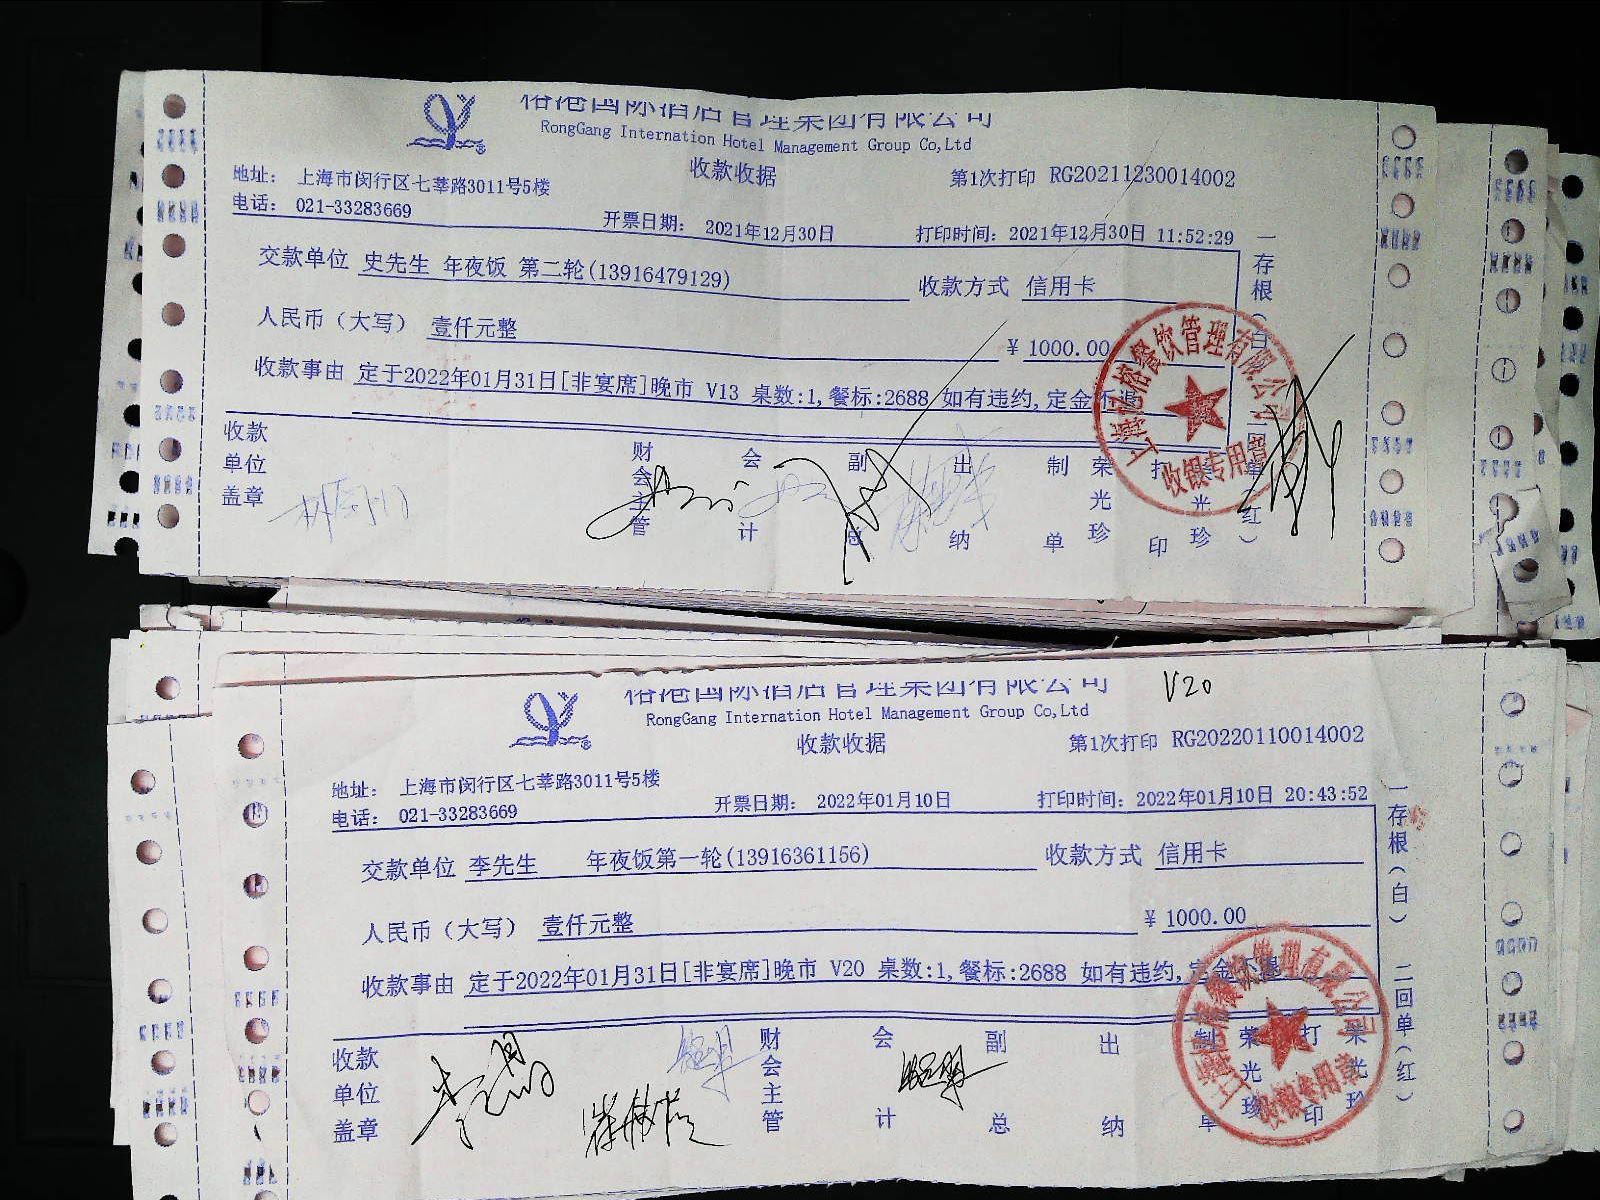 榕港国际酒店管理集团有限公司
RongGang Internation Hotel Management Group Co,Ltd
收款收据
第1次打印 RG20211230014002
地址: 上海市闵行区七莘路3011号5楼
电话: 021-33283669
开票日期: 2021年12月30日
打印时间: 2021年12月30日 11:52:29
交款单位 史先生 年夜饭 第二轮(13916479129)
收款方式 信用卡
人民币（大写） 壹仟元整
¥ 1000.00
收款事由 定于2022年01月31日[非宴席]晚市 V13 桌数:1,餐标:2688 如有违约,定金不退
收款单位盖章
财会主管
会计
副总
出纳
制单
荣光珍
打印
荣光珍
一存根（白）
二回单（红）
收银专用章
榕港国际酒店管理集团有限公司
V20
RongGang Internation Hotel Management Group Co,Ltd
收款收据
第1次打印 RG20220110014002
地址: 上海市闵行区七莘路3011号5楼
电话: 021-33283669
开票日期: 2022年01月10日
打印时间: 2022年01月10日 20:43:52
交款单位 李先生 年夜饭第一轮(13916361156)
收款方式 信用卡
人民币（大写） 壹仟元整
¥ 1000.00
收款事由 定于2022年01月31日[非宴席]晚市 V20 桌数:1,餐标:2688 如有违约,定金不退
收款单位盖章
财会主管
会计
副总
出纳
制单
荣光珍
打印
荣光珍
一存根（白）
二回单（红）
收银专用章